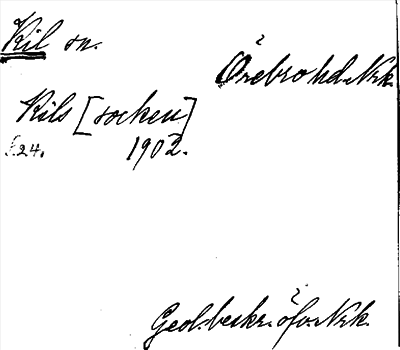 Kil sn.
Örebro hd. Nrk.
Kils [socken]
s. 24. 1902.
Geol. beskr. öfv. Nrk.